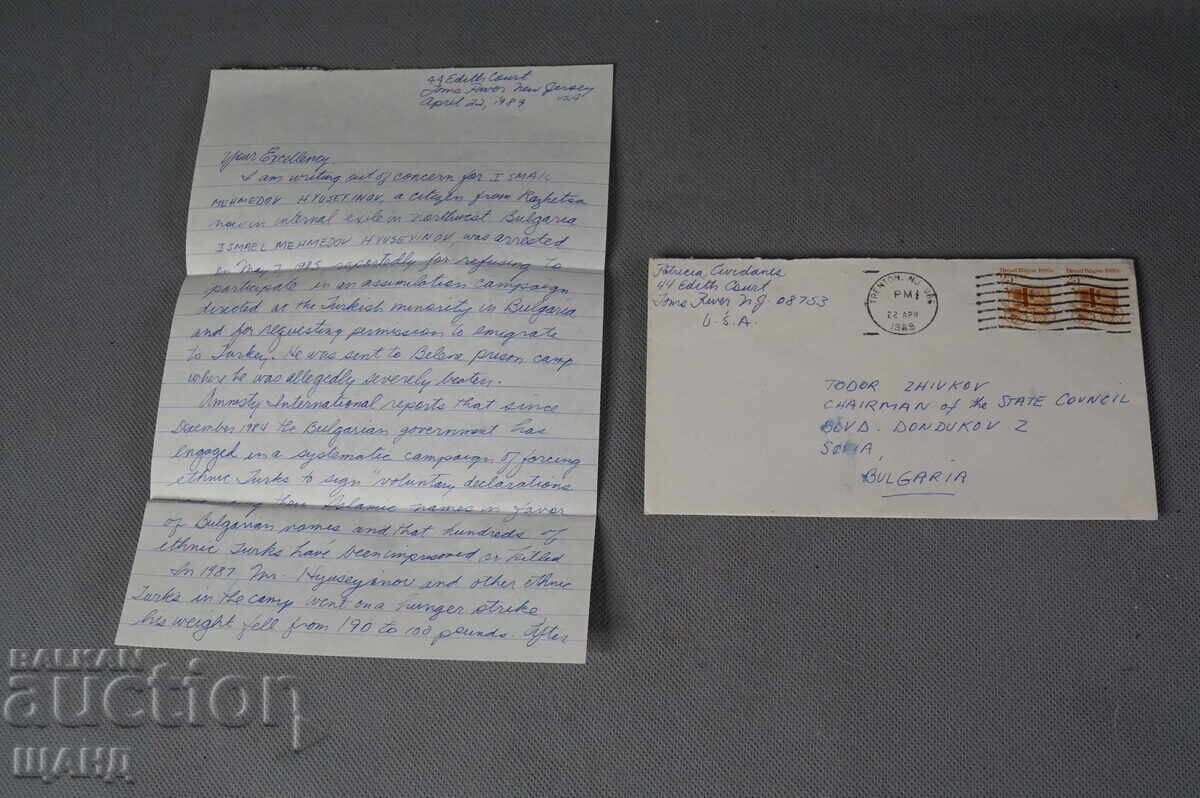 44 Edith Court
Toms River New Jersey
April 22, 1989 USA
Your Excellency
I am writing out of concern for ISMAIL
MEHMEDOV HYUSEYINOV, a citizen from
now in internal exile in northwest Bulgaria
ISMAEL MEHMEDOV HYUSEYINOV, was arrested
on May 7, 1985 reportedly for refusing to
participate in an assimilation campaign
directed at the Turkish minority in Bulgaria
and for requesting permission to emigrate
to Turkey. He was sent to Belene prison camp
where he was allegedly severely beaten.
Amnesty International reports that since
December 1984 the Bulgarian government has
engaged in a systematic campaign of forcing
ethnic Turks to sign "voluntary declarations
their Islamic names in favor
of Bulgarian names and that hundreds of
ethnic Turks have been imprisoned or killed
In 1987, Mr. Hyuseyinov and other ethnic
Turks in the camp went on a hunger strike
his weight fell from 190 to 100 pounds. After
Patricia
44 Edith Court
Toms River N.J. 08753
U.S.A.
TRENTON, NJ
PM
22 APR
1989
Bread Wagon 1880s
Bread Wagon 1880s
TODOR ZHIVKOV
CHAIRMAN of the STATE COUNCIL
BLVD. DONDUKOV 2
SOFIA,
BULGARIA
BALKAN
auction
ЩАНД